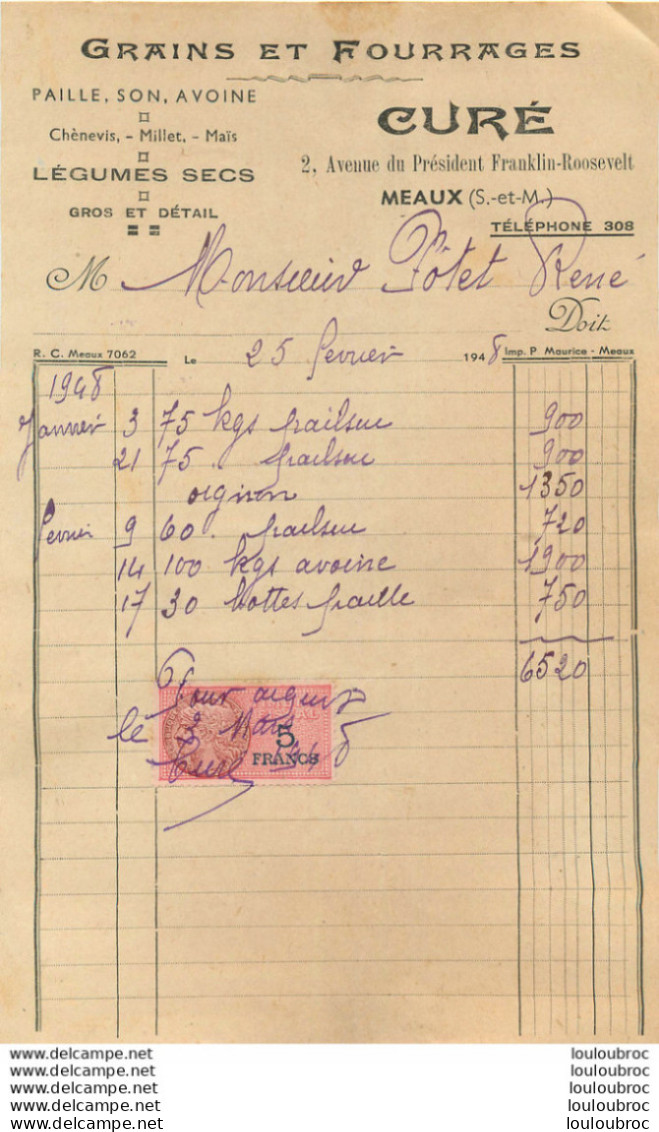 GRAINS ET FOURRAGES
PAILLE, SON, AVOINE
Chènevis, - Millet, - Maïs
LÉGUMES SECS
GROS ET DÉTAIL
CURÉ
2, Avenue du Président Franklin-Roosevelt
MEAUX (S.-et-M.)
TÉLÉPHONE 308
M Monsieur Pôtet René
Doit
R. C. Meaux 7062 Le 25 fevrier 1948 Imp. P Maurice - Meaux
1948
Janvier 3 75 kgs 900
21 75 900
1350
fevrier 9 60 720
14 100 kgs avoine 1900
17 30 bottes paille 750
6520
Pour
le 3 Mars
Curé
5
FRANCS
www.delcampe.net louloubroc
www.delcampe.net louloubroc
www.delcampe.net louloubroc
www.delcampe.net louloubroc
www.delcampe.net louloubroc